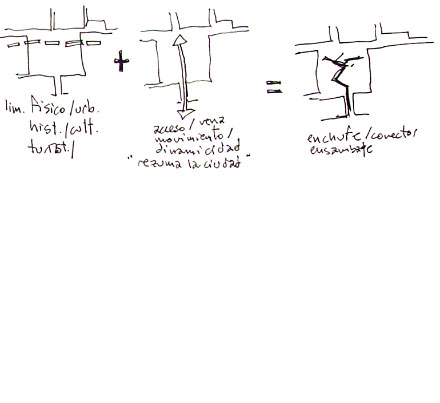 lim. físico/urb.
hist./cult.
turíst./
+
acceso/vena
movimiento/
dinamicidad
"rezuma la ciudad"
=
enchufe/conector
ensamblaje